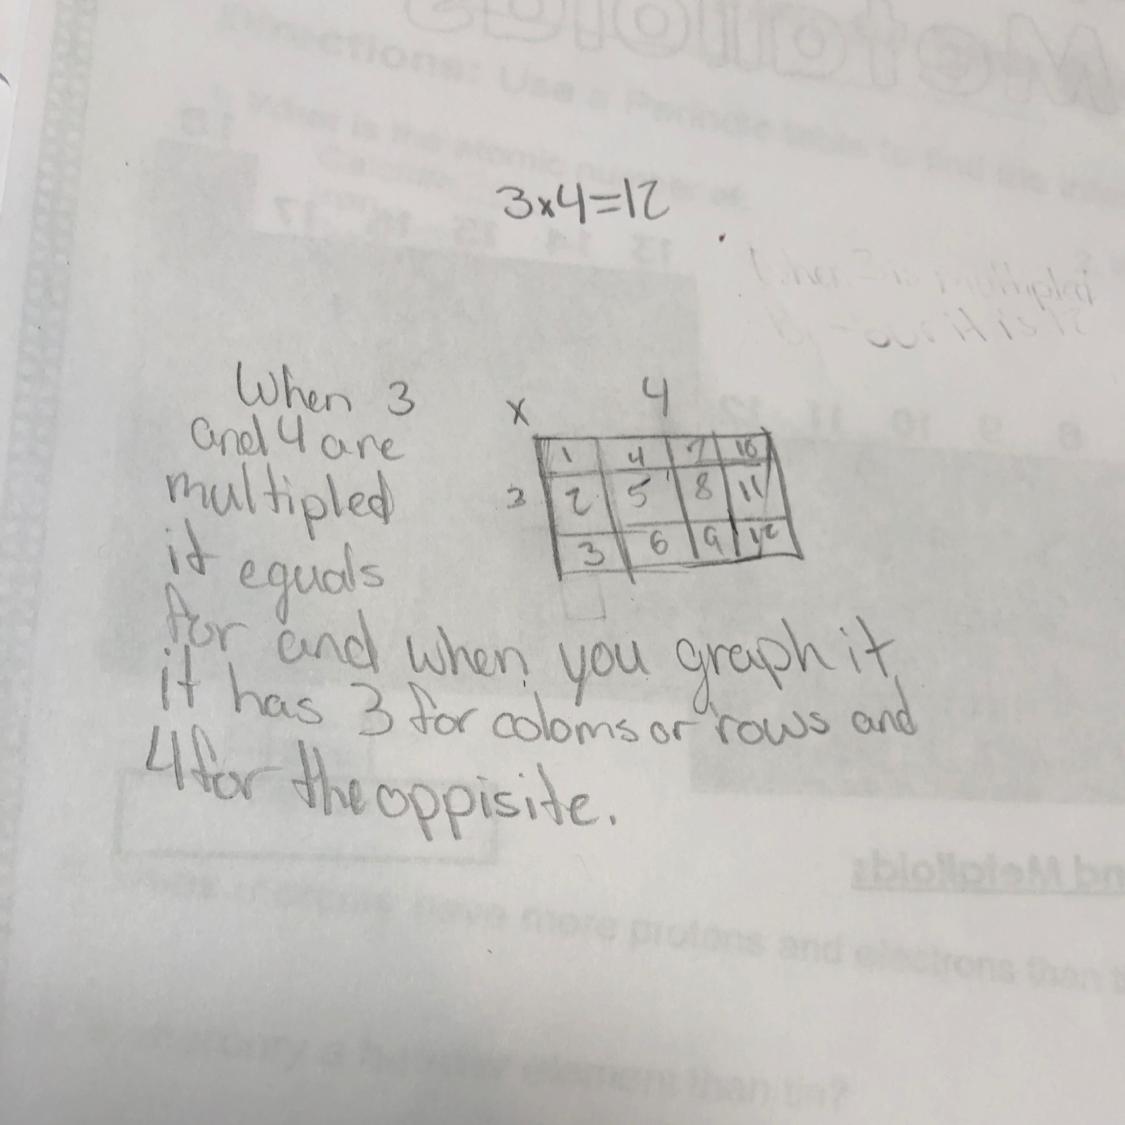 3x4=12
When 3
and 4 are
multipled
it equals
for and when you graph it
it has 3 for coloms or rows and
4 for the oppisite.
x 4
3
1 4 7 10
2 5 8 11
3 6 9 12